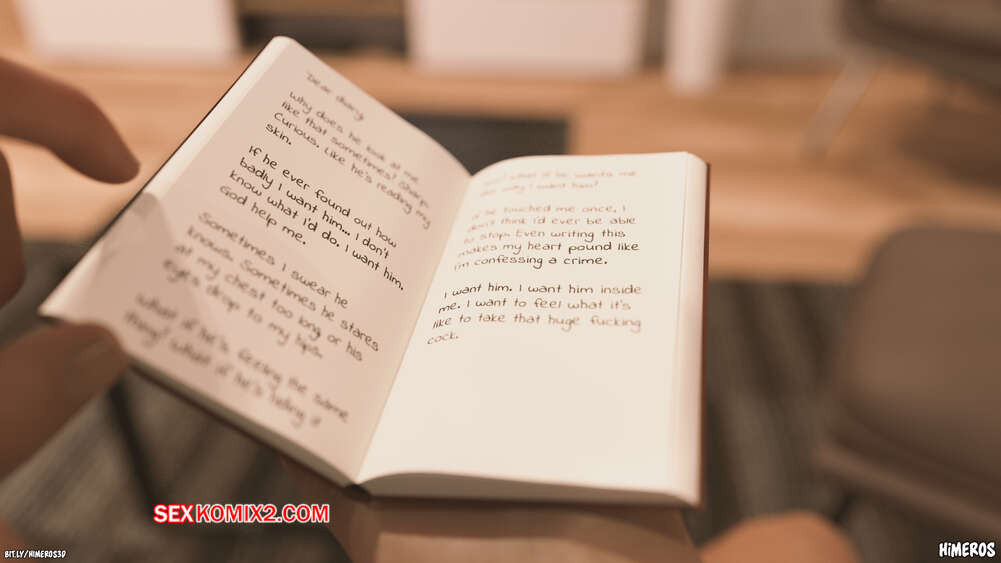 Dear diary
Why does he look at me
like that sometimes? Sharp.
Curious. Like he's reading my
skin.
If he ever found out how
badly I want him... I don't
know what I'd do. I want him.
God help me.
Sometimes I swear he
knows. Sometimes he stares
at my chest too long or his
eyes drop to my hips.
What if he's feeling the same
thing? What if he's hiding it
too? What if he wants me
the way I want him?
If he touched me once, I
don't think I'd ever be able
to stop. Even writing this
makes my heart pound like
I'm confessing a crime.
I want him. I want him inside
me. I want to feel what it's
like to take that huge fucking
cock.
SEXKOMIX2.COM
BIT.LY/HIMEROS3D
HIMEROS